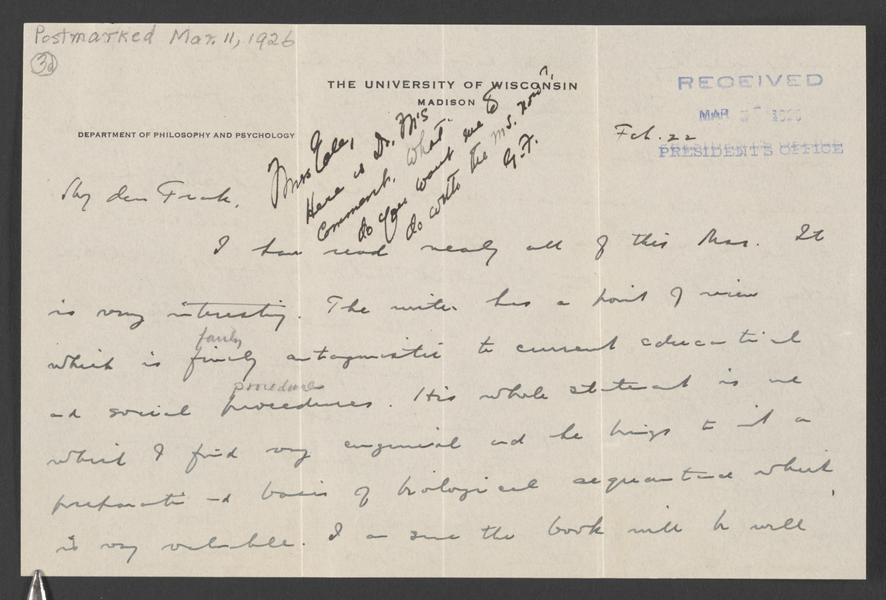 Postmarked Mar. 11, 1926
3d
THE UNIVERSITY OF WISCONSIN
MADISON
DEPARTMENT OF PHILOSOPHY AND PSYCHOLOGY
RECEIVED
MAR 1926
PRESIDENT'S OFFICE
Feb. 22
Here is Dr. M's
comment. What
do you want me to
do with the ms. now?
G.F.
My dear Frank,
I have read nearly all of this Mss. It
is very interesting. The writer has a point of view
fairly
which is fairly antagonistic to current educational
procedures
and social procedures. His whole statement is one
which I find very congenial and he brings to it a
preparation and basis of biological acquaintance which
is very valuable. I am sure the book will be well